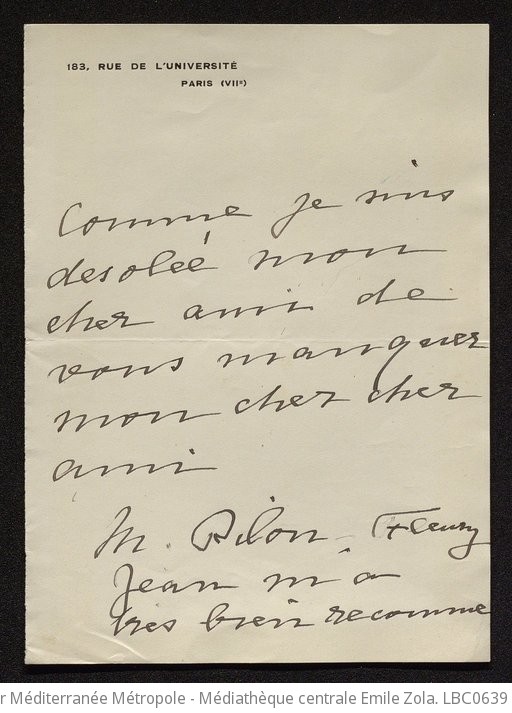 183, RUE DE L'UNIVERSITÉ
PARIS (VIIe)
Comme je suis
desoleé mon
cher ami de
vous manquer
mon cher cher
ami
M. Pilon Fleury
Jean m'a
tres bien recomme
r Méditerranée Métropole - Médiathèque centrale Emile Zola. LBC0639